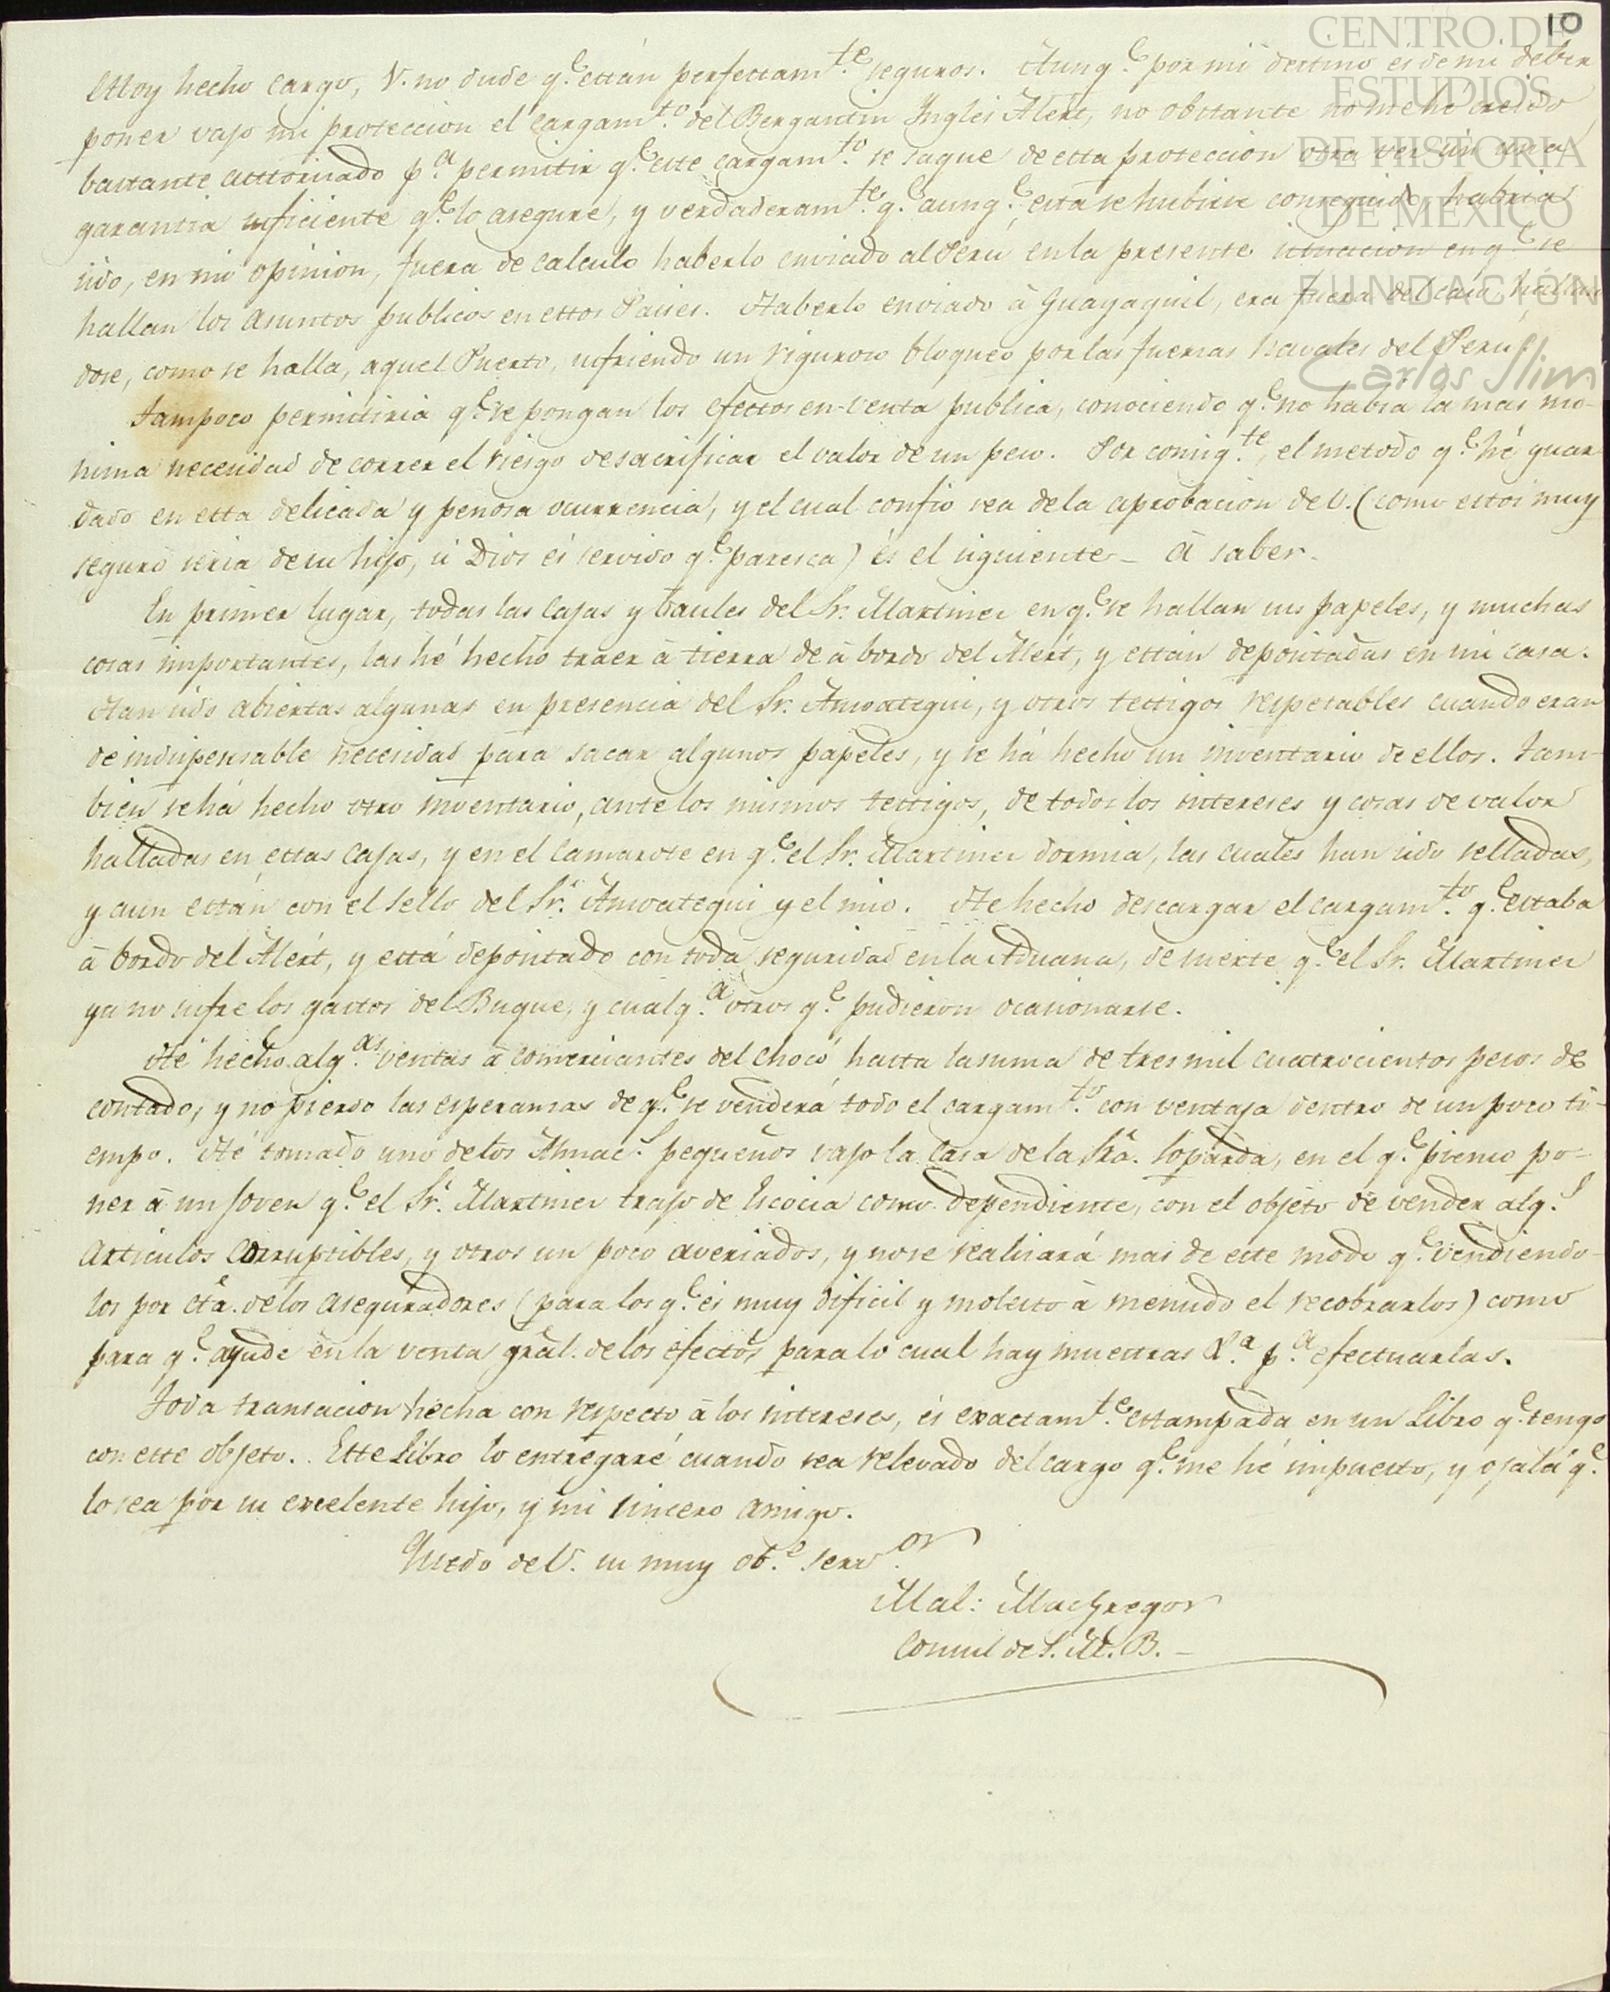 10
CENTRO DE
ESTUDIOS
DE HISTORIA
DE MÉXICO
FUNDACIÓN
Carlos Slim
estoy hecho cargo, V. no dude q.e están perfectam.te seguros. Aunq.e por mi destino es de mi deber
poner vajo mi proteccion el cargam.to del Bergantin Ingles Alert, no obstante no me he creido
bastante auttorisado p.a permitir q.e este cargam.to se saque de esta proteccion otra vez sin una
garantia suficiente q.e lo asegure, y verdaderam.te q.e aunq.e esta se hubiese conseguido, habria
sido, en mi opinion, fuera de calculo haberlo enviado al Perú en la presente situacion en q.e se
hallan los asuntos publicos en estos Paises. Haberlo enviado à Guayaquil, era fuera del caso hallan
dose, como se halla, aquel Puerto, sufriendo un riguroso bloqueo por las fuerzas navales del Perú.
Tampoco permitiria q.e se pongan los efectos en venta publica, conociendo q.e no habia la mas mi-
nima necesidad de correr el riesgo de sacrificar el valor de un peso. Por consig.te, el metodo q.e hé guar-
dado en esta delicada y penosa ocurrencia, y el cual confio sea de la aprobacion de V. (como estoi muy
seguro seria de su hijo, si Dios és servido q.e paresca) és el siguiente - à saber.
En primer lugar, todas las cajas y baules del Sr. Martinez en q.e se hallan sus papeles, y muchas
cosas importantes, las hé hecho traer à tierra de à bordo del Alert, y están depositadas en mi casa.
Han sido abiertas algunas en presencia del Sr. Amoategui, y otros testigos respetables cuando eran
de indispensable necesidad para sacar algunos papeles, y se há hecho un inventario de ellos. Tam-
bien se há hecho otro inventario, ante los mismos testigos, de todos los intereses y cosas de valor
halladas en estas cajas, y en el camarote en q.e el Sr. Martinez dormia, las cuales han sido selladas,
y aun están con el sello del Sr. Amoategui y el mio. He hecho descargar el cargam.to q.e estaba
à bordo del Alert, y está depositado con toda seguridad en la Aduana, de suerte q.e el Sr. Martinez
ya no sufre los gastos del Buque, y cualq.a otros q.e pudieron ocasionarse.
Hé hecho alg.as ventas à comerciantes del Chocó hasta la suma de tres mil cuatrocientos pesos de
contado, y no pierdo las esperanzas de q.e se venderá todo el cargam.to con ventaja dentro de un poco ti-
empo. Hé tomado uno de los Almac.s pequeños vajo la casa de la Sra. Loparda, en el q.e pienso po-
ner à un joven q.e el Sr. Martinez trajo de Escocia como dependiente, con el objeto de vender alg.s
articulos corruptibles, y otros un poco averiados, y no se realizará mas de este modo q.e vendiendo-
los por cta. de los aseguradores (para los q.e es muy dificil y molesto à menudo el recobrarlos) como
para q.e ayude en la venta gral. de los efectos para lo cual hay muestras &.a p.a efectuarlas.
Toda transacion hecha con respecto à los intereses, és exactam.te estampada en un Libro q.e tengo
con este objeto. Este Libro lo entregaré cuando sea relevado del cargo q.e me hé impuesto, y ojalá q.e
lo sea por su excelente hijo, y mi sincero amigo.
Quedo de V. su muy ob.e serv.or
Mal: MacGregor
Consul de S. M. B.